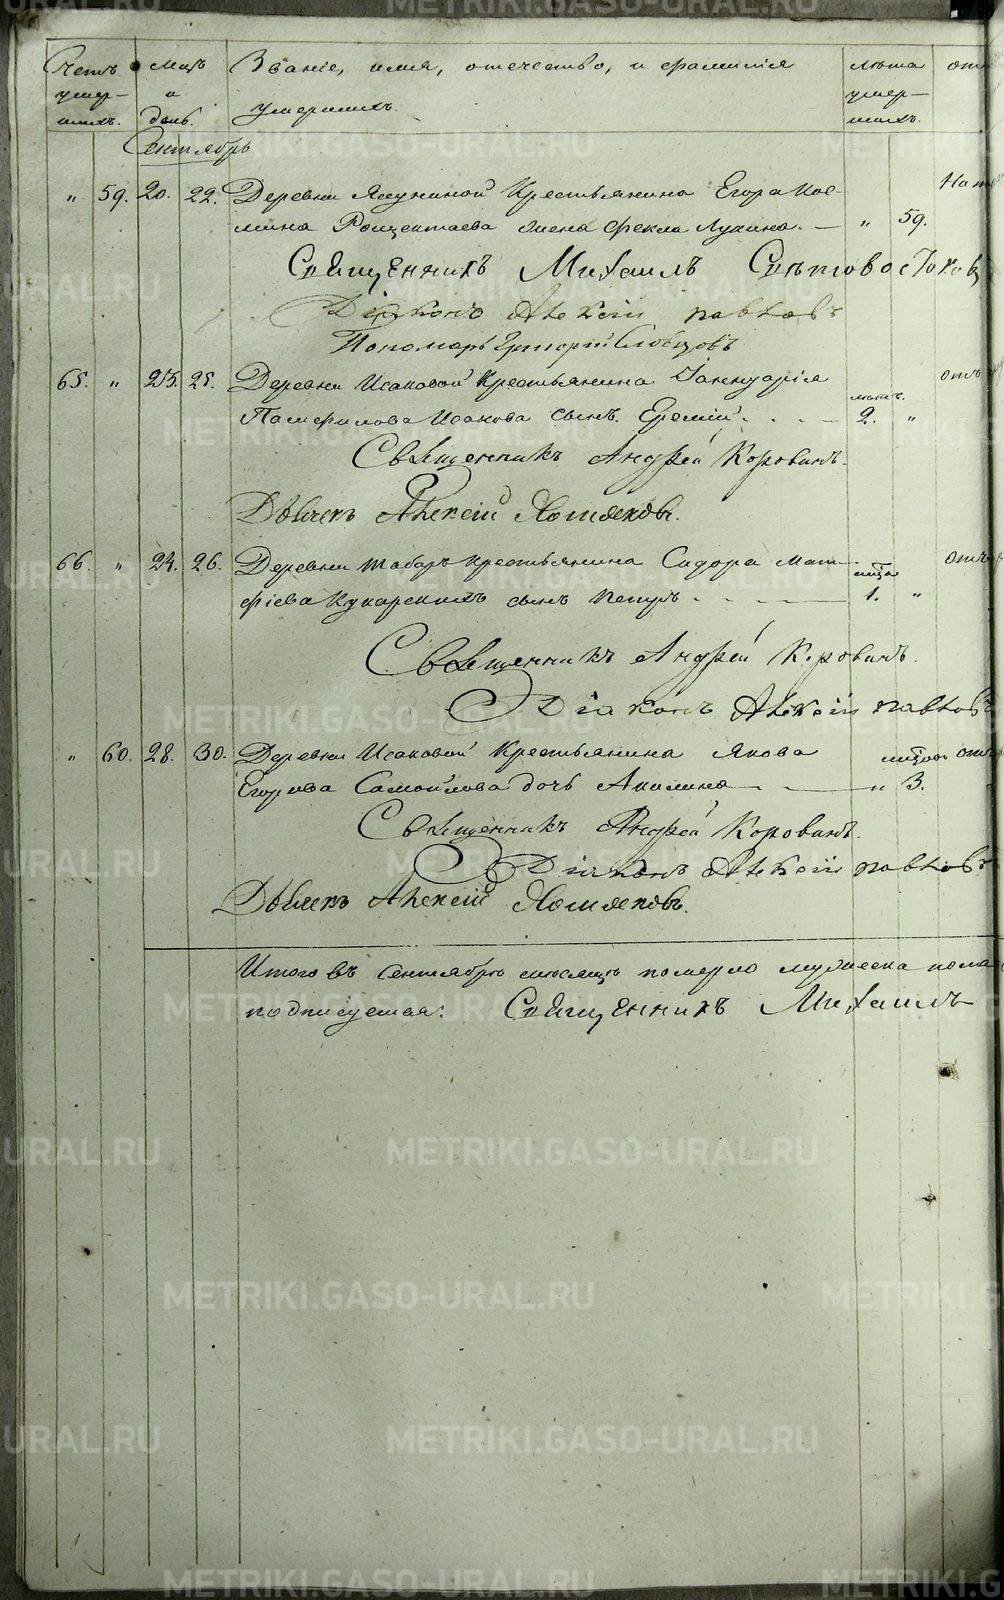 Счетъ умер-шихъ. Мцъ и день. Званіе, имя, отечество, и фамилія умершихъ. лѣта умер-шихъ. отъ
Сентябрь
" 59. 20. 22. Деревни Крестьянина Егора Кос-
мина жена Фекла Лукина. — " 59.
Священникъ Михаилъ Свѣтовостоковъ
Діаконъ Алексій Павловъ
Пономарь Григорій Словцовъ
65. " 23. 25. Деревни Исаковой Крестьянина Іаннуарія отъ
Памфилова Исакова сынъ Еремій . . . — лѣтъ. 2. "
Священникъ Андрей Коровинъ.
Дьячекъ Алексій Хомяковъ.
66. " 24. 26. Деревни Табаръ крестьянина Сидора Мат- отъ
фіева Кукарскихъ сынъ Петръ . . — мца 1. "
Священникъ Андрей Коровинъ.
Діаконъ Алексій Павловъ
" 60. 28. 30. Деревни Исаковой Крестьянина Якова отъ
Егорова Самойлова дочь Акилина — — " 3.
Священникъ Андрей Коровинъ.
Діаконъ Алексій Павловъ
Дьячекъ Алексій Хомяковъ.
Итого въ Сентябрѣ мѣсяцѣ померло мужеска пола
Священникъ Михаилъ
METRIKI.GASO-URAL.RU